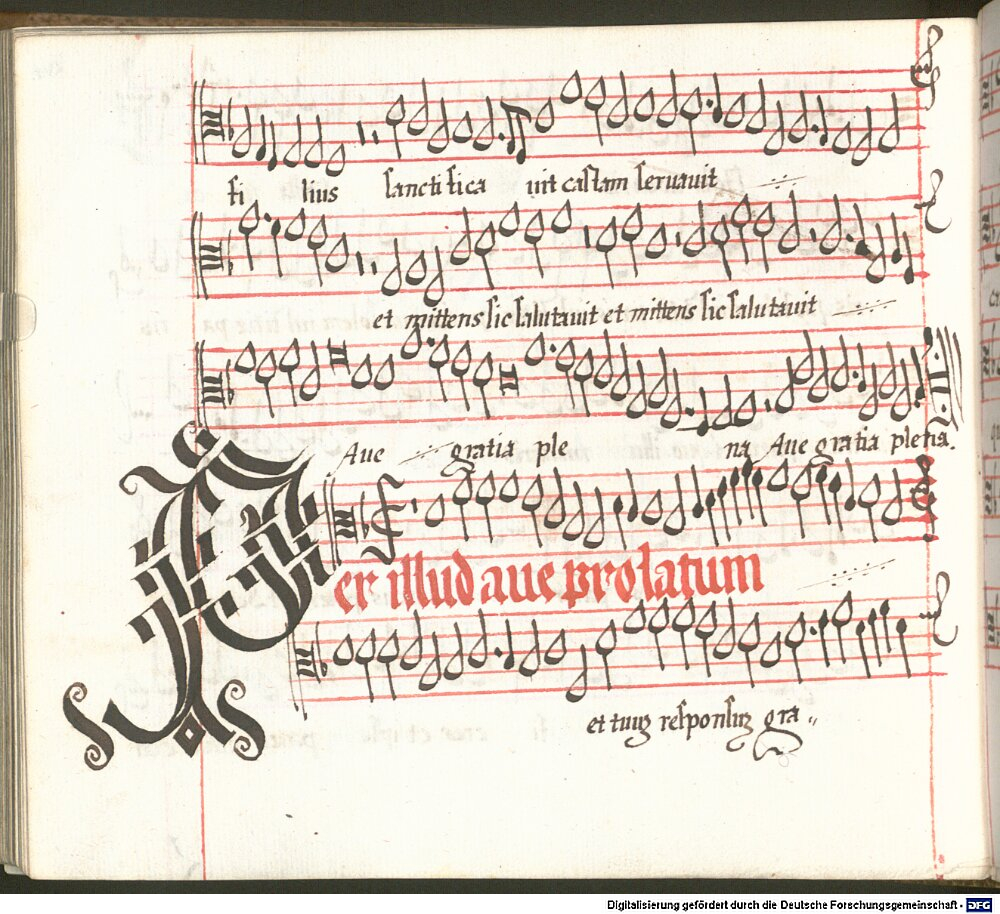 fi lius sanctifica uit castam seruauit
et mittens sic salutauit et mittens sic salutauit
Aue gratia ple na Aue gratia plena.
Per illud aue prolatum
et tuuʒ responsuʒ gra
Digitalisierung gefördert durch die Deutsche Forschungsgemeinschaft - DFG